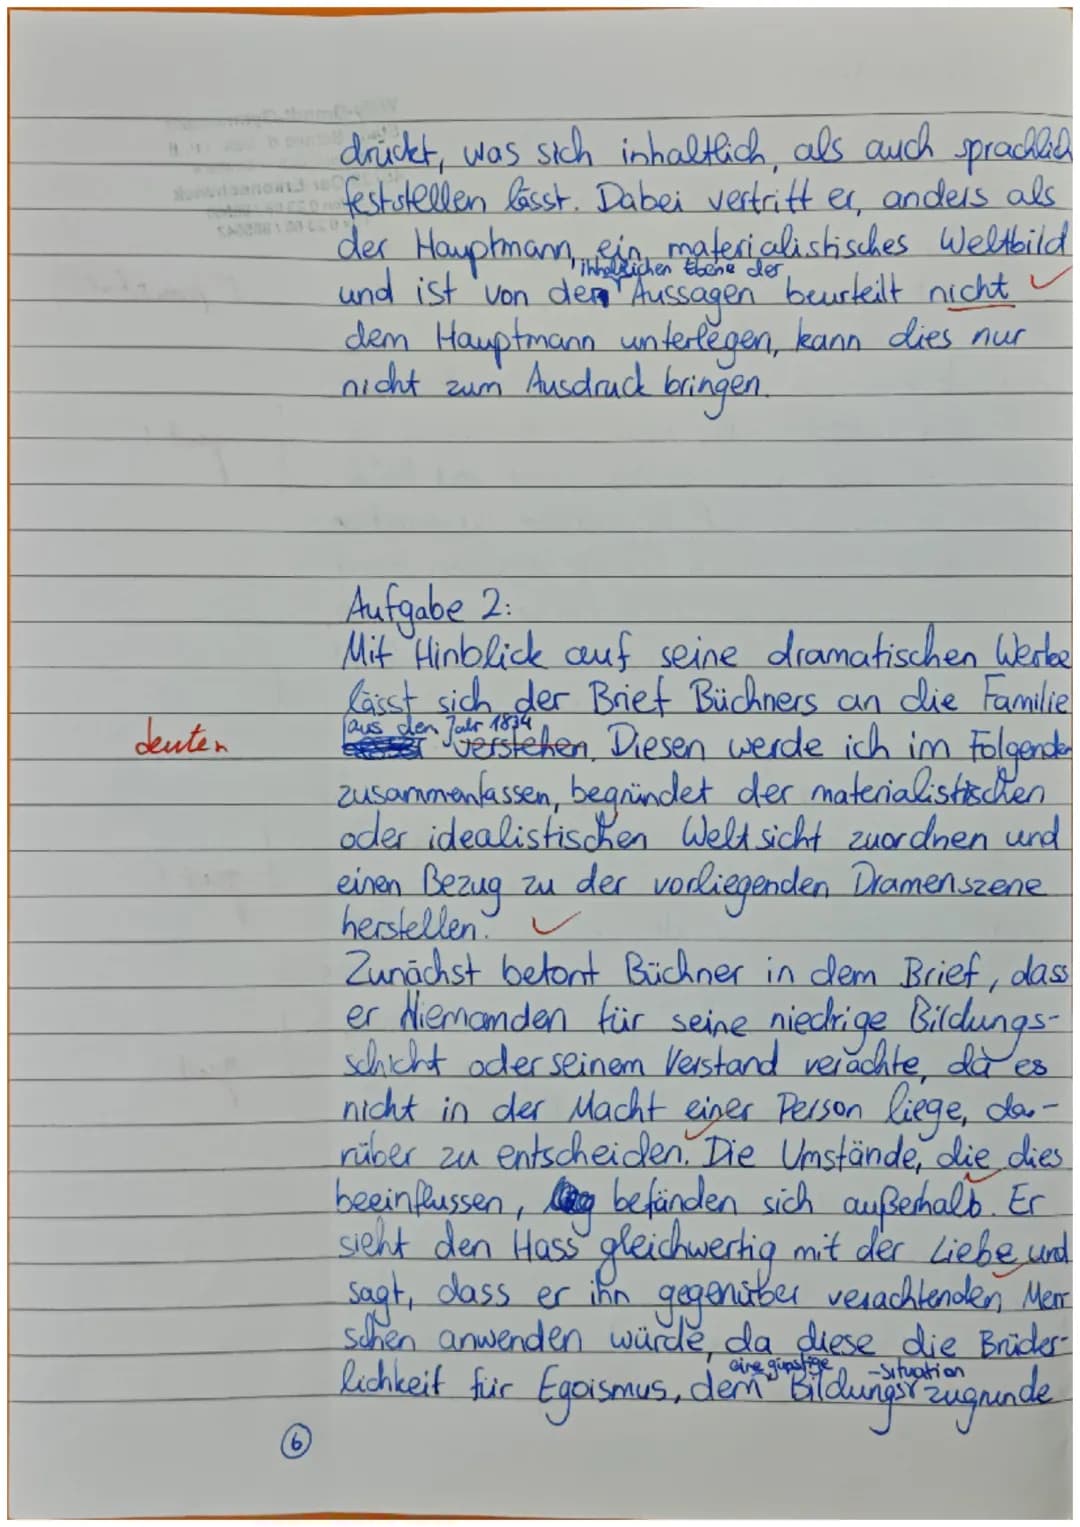 drückt, was sich inhaltlich, als auch sprachlich
feststellen lässt. Dabei vertritt er, anders als
der Hauptmann, ein materialistisches Weltbild
inhaltlichen Ebene der
und ist von der Aussagen beurteilt nicht
dem Hauptmann unterlegen, kann dies nur
nicht zum Ausdruck bringen.
Aufgabe 2:
Mit Hinblick auf seine dramatischen Werke
lässt sich der Brief Büchners an die Familie
aus den Jahr 1834
deuten verstehen. Diesen werde ich im Folgenden
zusammenfassen, begründet der materialistischen
oder idealistischen Weltsicht zuordnen und
einen Bezug zu der vorliegenden Dramenszene
herstellen.
Zunächst betont Büchner in dem Brief, dass
er Niemanden für seine niedrige Bildungs-
schicht oder seinem Verstand verachte, da es
nicht in der Macht einer Person liege, da-
rüber zu entscheiden. Die Umstände, die dies
beeinflussen, befänden sich außerhalb. Er
sieht den Hass gleichwertig mit der Liebe und
sagt, dass er ihn gegenüber verachtenden Men
schen anwenden würde, da diese die Brüder-
eine günstige -situation
lichkeit für Egoismus, dem Bildungs zugrunde
6